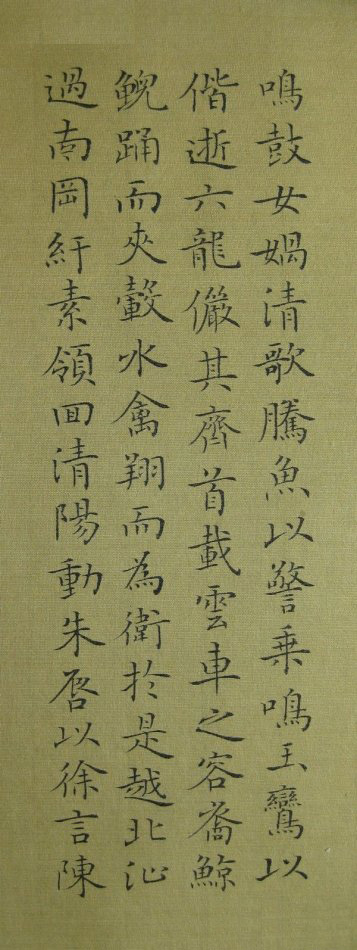 鳴鼓女媧清歌騰魚以警乗鳴玉鸞以
偕逝六龍儼其齊首載雲車之容裔鯨
鯢踊而夾轂水禽翔而為衛扵是越北沚
過南岡紆素領囬清陽動朱唇以徐言陳